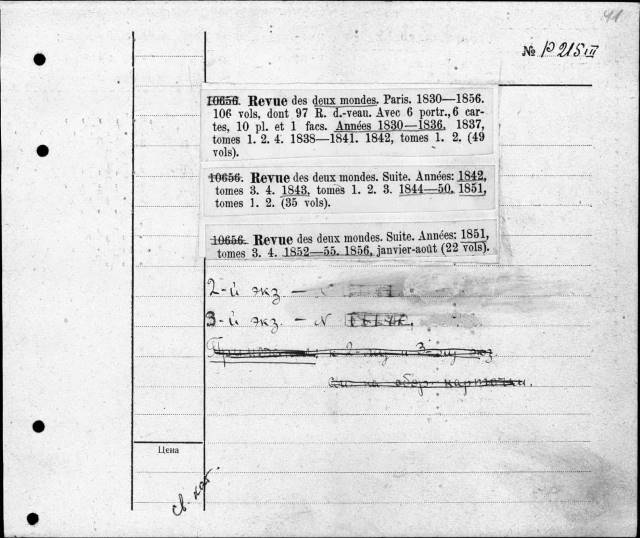 41
№ P 215 III
10656. Revue des deux mondes. Paris. 1830—1856.
106 vols, dont 97 R. d.-veau. Avec 6 portr., 6 car-
tes, 10 pl. et 1 facs. Années 1830—1836. 1837,
tomes 1. 2. 4. 1838—1841. 1842, tomes 1. 2. (49
vols).
10656. Revue des deux mondes. Suite. Années: 1842,
tomes 3. 4. 1843, tomes 1. 2. 3. 1844—50. 1851,
tomes 1. 2. (35 vols).
10656. Revue des deux mondes. Suite. Années: 1851,
tomes 3. 4. 1852—55. 1856, janvier-août (22 vols).
2-й экз — N
3-й экз. — N
к 2-му и 3-му экз
на обор карточки.
Цена
св. кат.